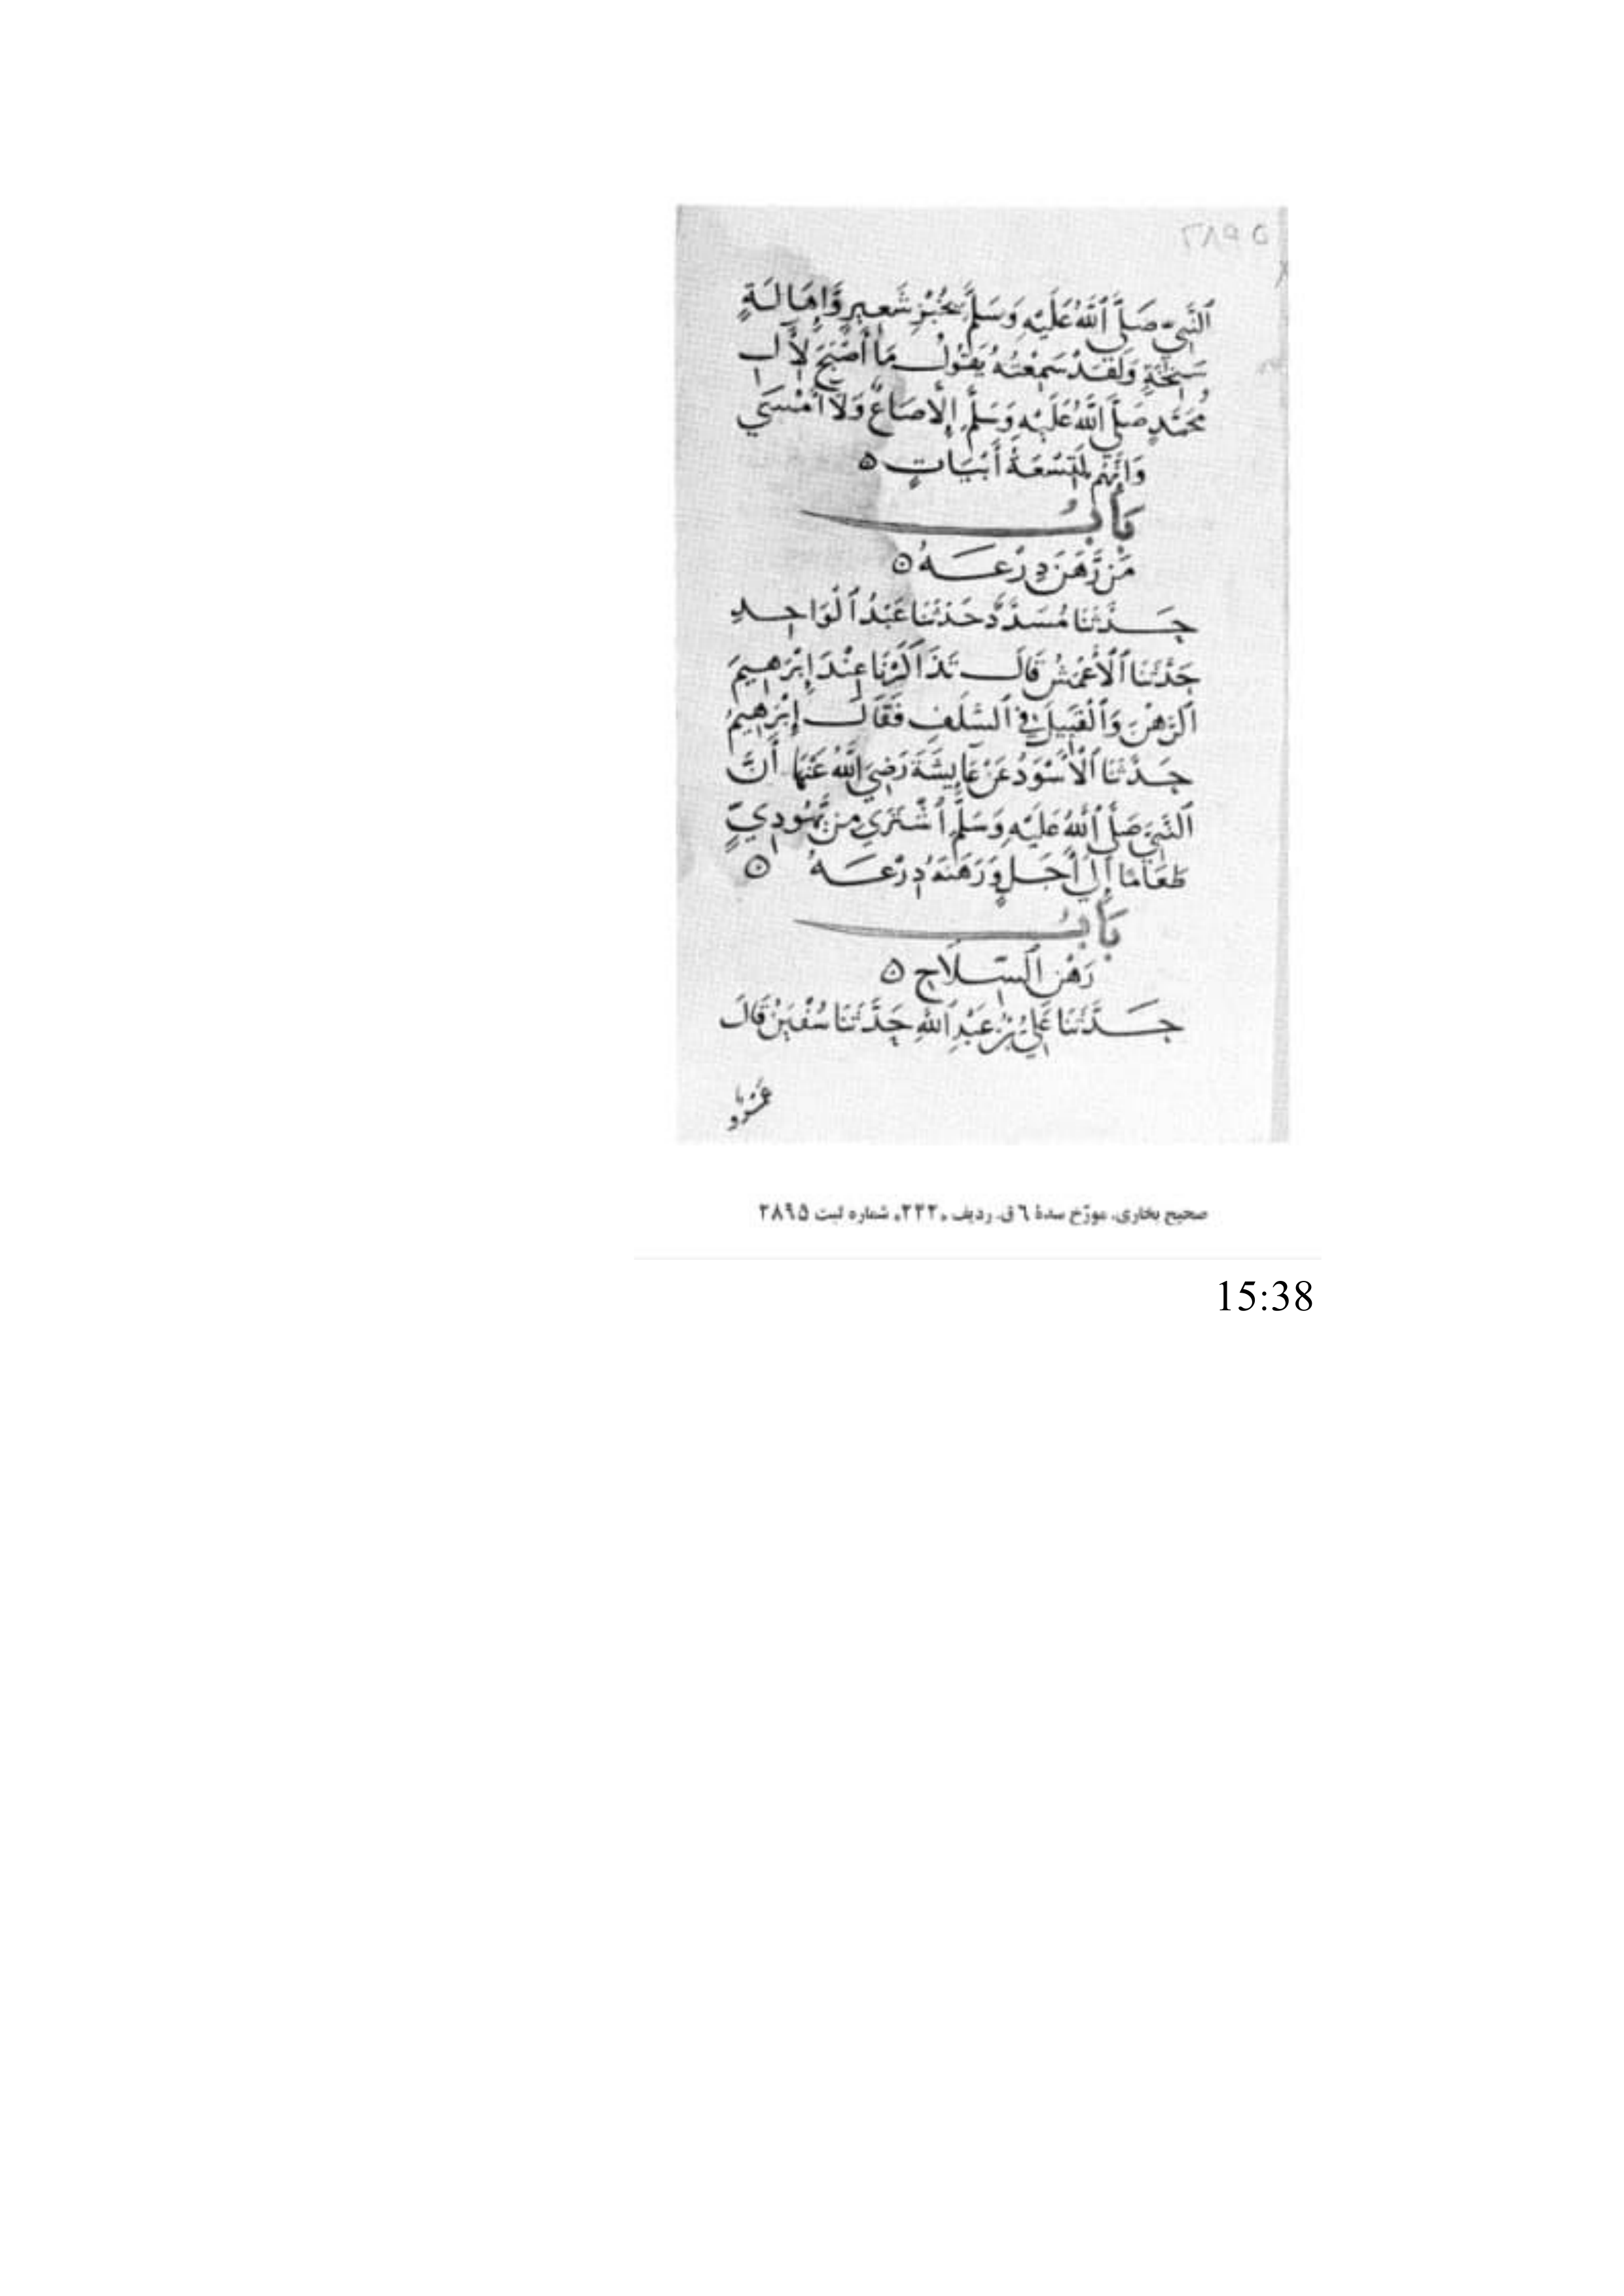 ٢٨٩٥
ٱلنَّبِيِّ صَلَّى ٱللَّهُ عَلَيْهِ وَسَلَّمَ بِخُبْزِ شَعِيرٍ وَّإِهَالَةٍ
سَنِخَةٍ وَلَقَدْ سَمِعْتُهُ يَقُولُ مَا أَصْبَحَ لِأٓلِ
مُحَمَّدٍ صَلَّى ٱللَّهُ عَلَيْهِ وَسَلَّمَ إِلَّا صَاعٌ وَلَا أَمْسَىٰ
وَإِنَّهُمْ لَتِسْعَةُ أَبْيَاتٍ ۵
بَابُ
مَن رَّهَنَ دِرْعَهُ ۵
حَدَّثَنَا مُسَدَّدٌ حَدَّثَنَا عَبْدُ ٱلْوَاحِدِ
حَدَّثَنَا ٱلْأَعْمَشُ قَالَ تَذَاكَرْنَا عِنْدَ إِبْرَهِيمَ
ٱلرَّهْنَ وَٱلْقَبِيلَ فِي ٱلسَّلَفِ فَقَالَ إِبْرَهِيمُ
حَدَّثَنَا ٱلْأَسْوَدُ عَنْ عَايِشَةَ رَضِيَ ٱللَّهُ عَنْهَا أَنَّ
ٱلنَّبِيَّ صَلَّى ٱللَّهُ عَلَيْهِ وَسَلَّمَ ٱشْتَرَىٰ مِن يَّهُودِيٍّ
طَعَامًا إِلَىٰ أَجَلٍ وَّرَهَنَهُ دِرْعَهُ ۵
بَابُ
رَهْنِ ٱلسِّلَاحِ ۵
حَدَّثَنَا عَلِيُّ بْنُ عَبْدِ ٱللَّهِ حَدَّثَنَا سُفْيَنُ قَالَ
عَمْرٌو
صحیح بخاری، مورّخ سدهٔ ٦ ق. ردیف ،٢٣٢، شماره ثبت ٢٨٩٥
15:38